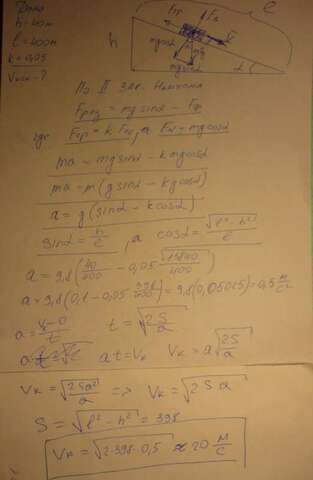 Дано
h=40м
l=400м
k=0,05
Vкон-?
Fтр
FN
h
l
mg
mgcosα
mgsinα
α
По II Зак. Ньютона
Fрез=mgsinα-Fтр
где Fтр=k FN, а FN=mgcosα
ma=mgsinα-kmgcosα
ma=m(gsinα-kgcosα)
a=g(sinα-kcosα)
sinα=h/l, а cosα=√(l²-h²)/l
a=9,8(40/400-0,05
a=9,8(0,1-0,05 =9,8(0,05025)=0,5 м/с²
a=(Vк-0)/t t=√(2S/a)
at=Vк Vк=a√(2S/a)
Vк=√(2Sa²/a) => Vк=√(2Sa)
S=√(l²-h²)=398
Vк=√(2·398·0,5)≈20 м/с